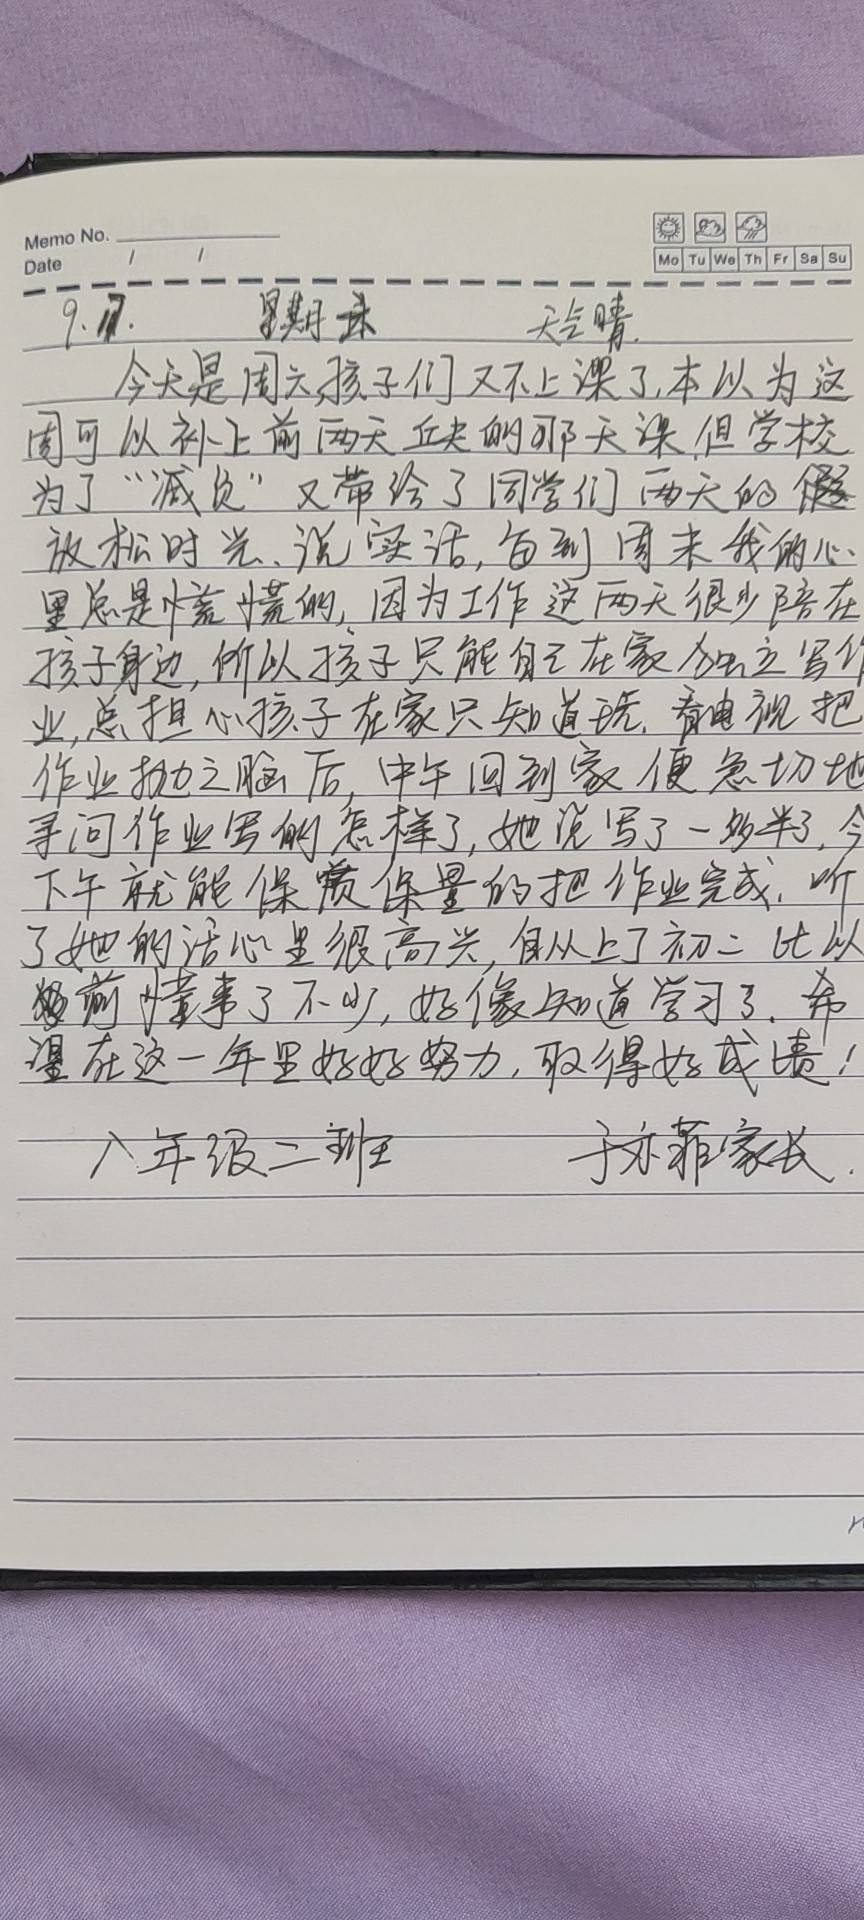 Memo No.
Date / /
Mo Tu We Th Fr Sa Su
9.17. 星期六 天气晴.
今天是周六,孩子们又不上课了,本以为这
周可以补上前两天丘夬的那天课,但学校
为了“减负”又带给了同学们两天的
放松时光、说实话,每到周末我的心
里总是慌慌的,因为工作这两天很少陪在
孩子身边,所以孩子只能自己在家独立写作
业,总担心孩子在家只知道玩、看电视把
作业抛之脑后,中午回到家便急切地
寻问作业写的怎样了,她说写了一多半了,今
下午就能保质保量的把作业完成,听
了她的话心里很高兴,自从上了初二比以
前懂事了不少,好像知道学习了.希
望在这一年里好好努力,取得好成绩!
八年级二班 于亦菲家长.